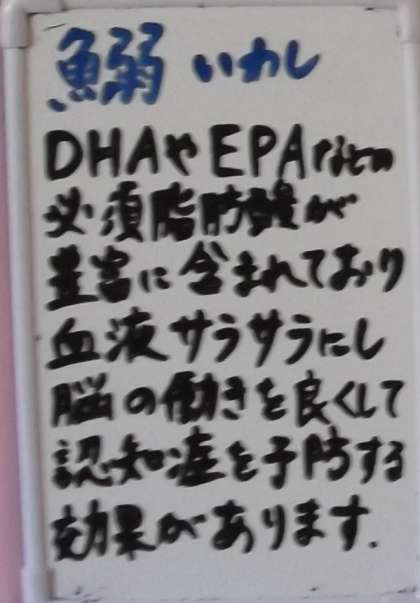 鰯 いわし
DHAやEPAなどの
必須脂肪酸が
豊富に含まれており
血液サラサラにし
脳の働きを良くして
認知症を予防する
効果があります.